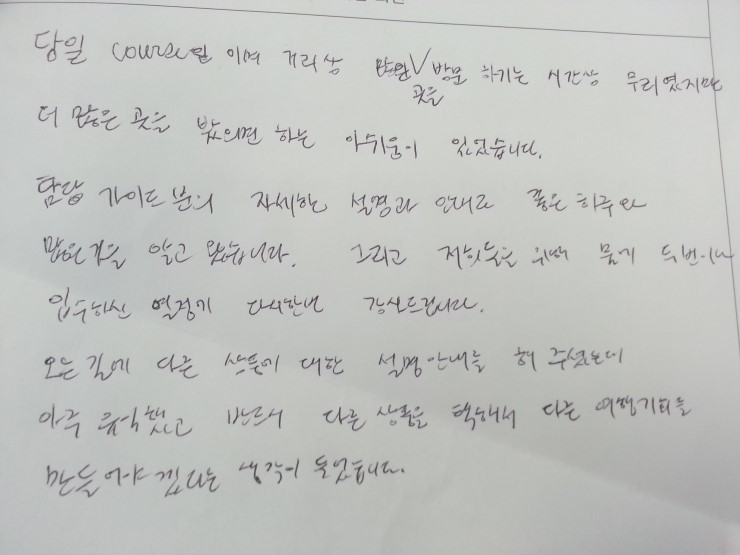 당일 course일 이며 거리상 많은 곳을 방문 하기는 시간상 무리였지만
더 많은 곳을 봤으면 하는 아쉬움이 있었습니다.
담당 가이드분의 자세한 설명과 안내로 좋은 하루와
많은것을 알고 왔습니다. 그리고 저희들을 위해 물게 두번이나
입수하신 열정게 다시한번 감사드립니다.
오는길에 다른 상품에 대한 설명안내를 해 주셨는데
아주 유익했고 반드시 다른 상품을 택해서 다른 여행기회를
만들어야 겠다는 생각이 들었습니다.